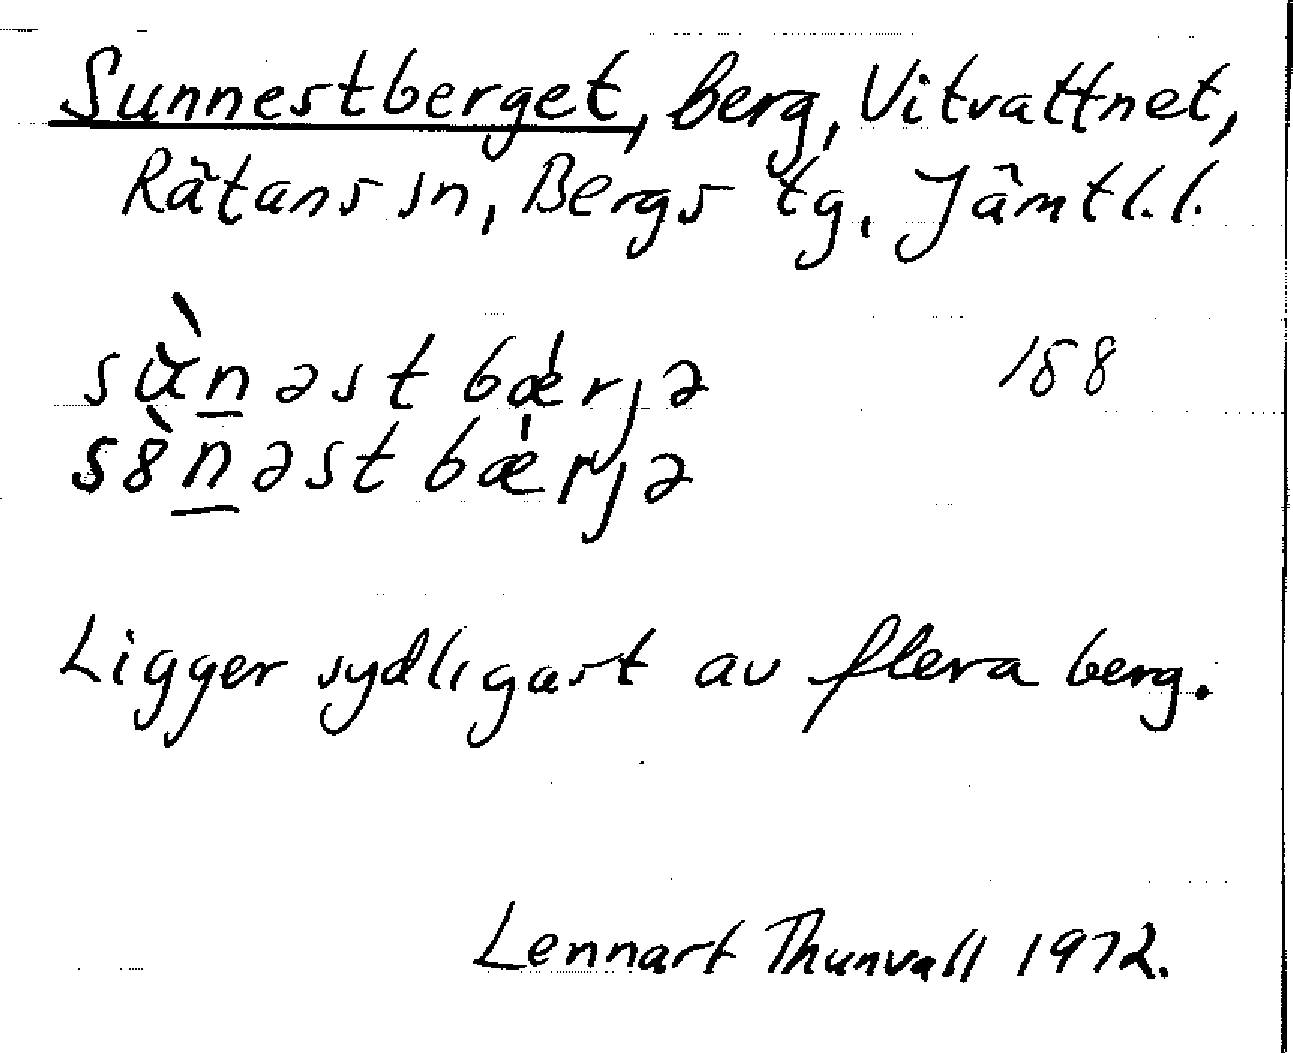 Sunnestberget, berg, Vitvattnet,
Rätans sn, Bergs tg. Jämtl.l.
sɑ̀n̲əst bǽrjə 188
s8̀n̲əst bǽrjə
Ligger sydligast av flera berg.
Lennart Thunvall 1972.